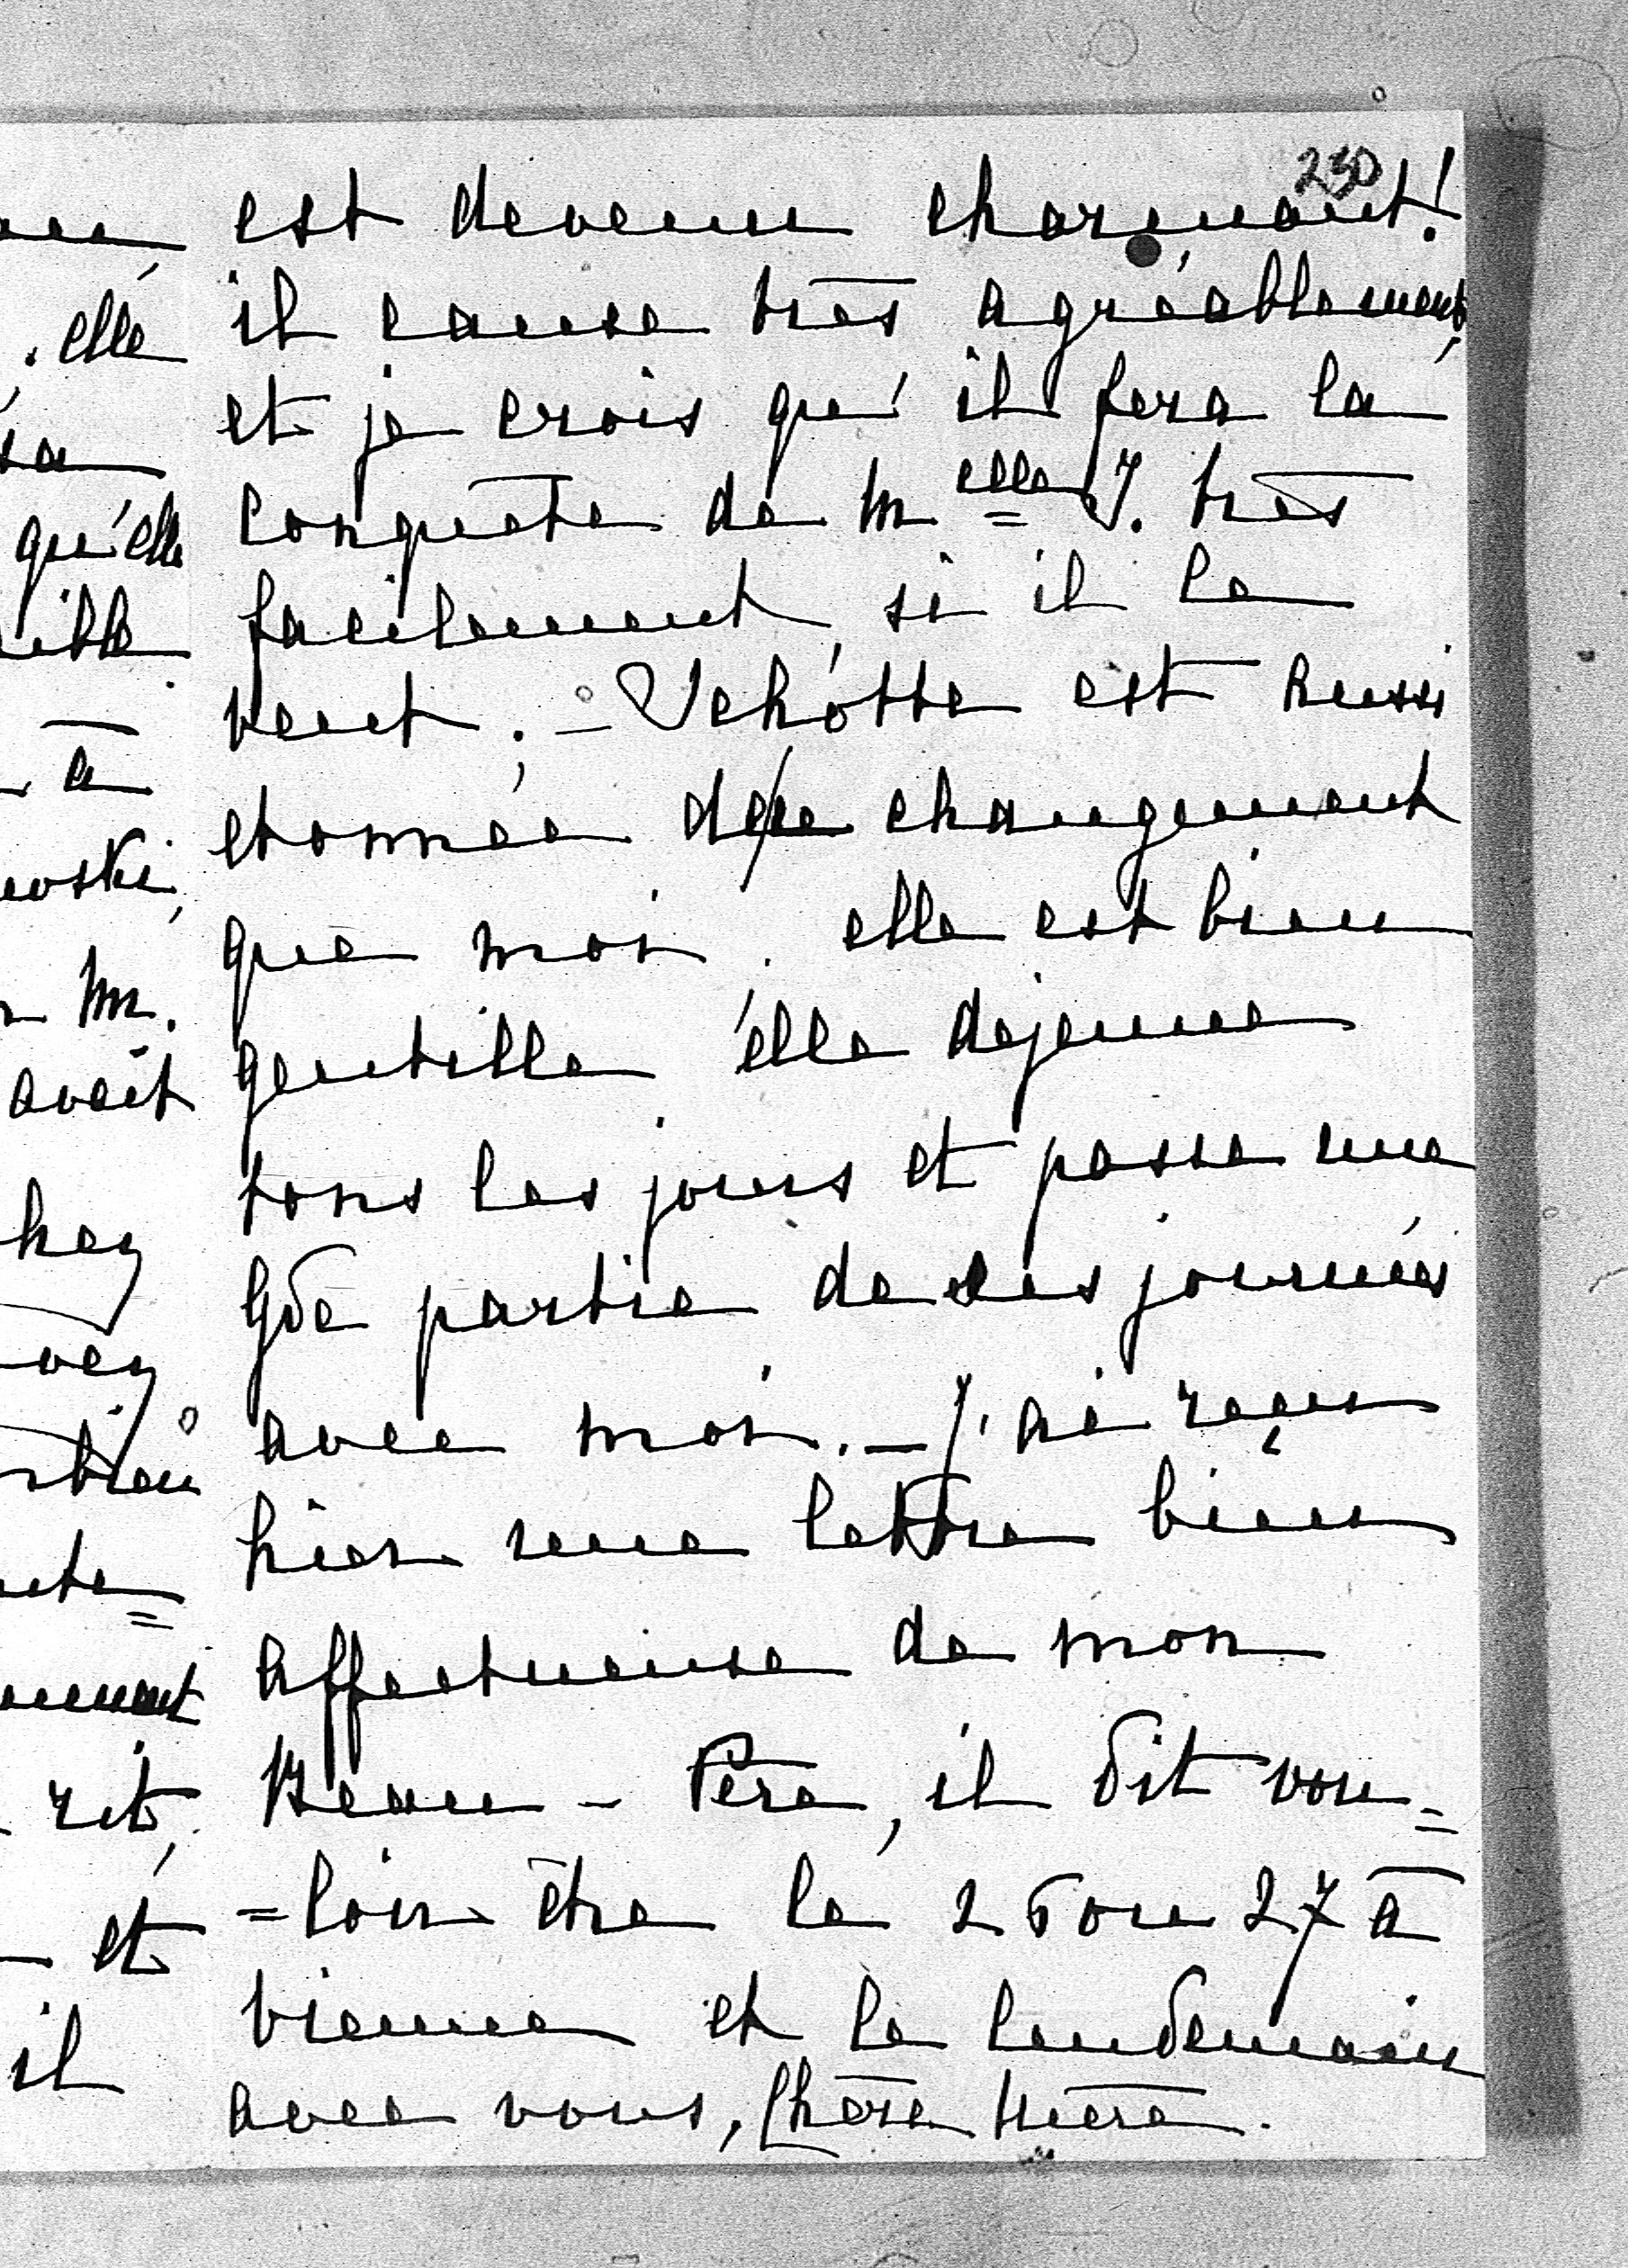 230
est devenu charmant!
il cause très agréablement,
et je crois qu'il fera la
conquête de Melle J. très
facilement, si il le
veut; – est aussi
etonnée de ce changement
que moi. elle est bien
gentille elle dejeune
tous les jours et passe une
Gde partie de ses journées
avec moi. – J'ai reçu
hier une lettre bien
affectueuse de mon
Beau-Père, il dit vou=
=loir être le 26 ou 27 à
vienne et le lendemain
avec vous, Chère Mère.
elle
sa
qu'elle
à
M.
avait
rit,
et
il